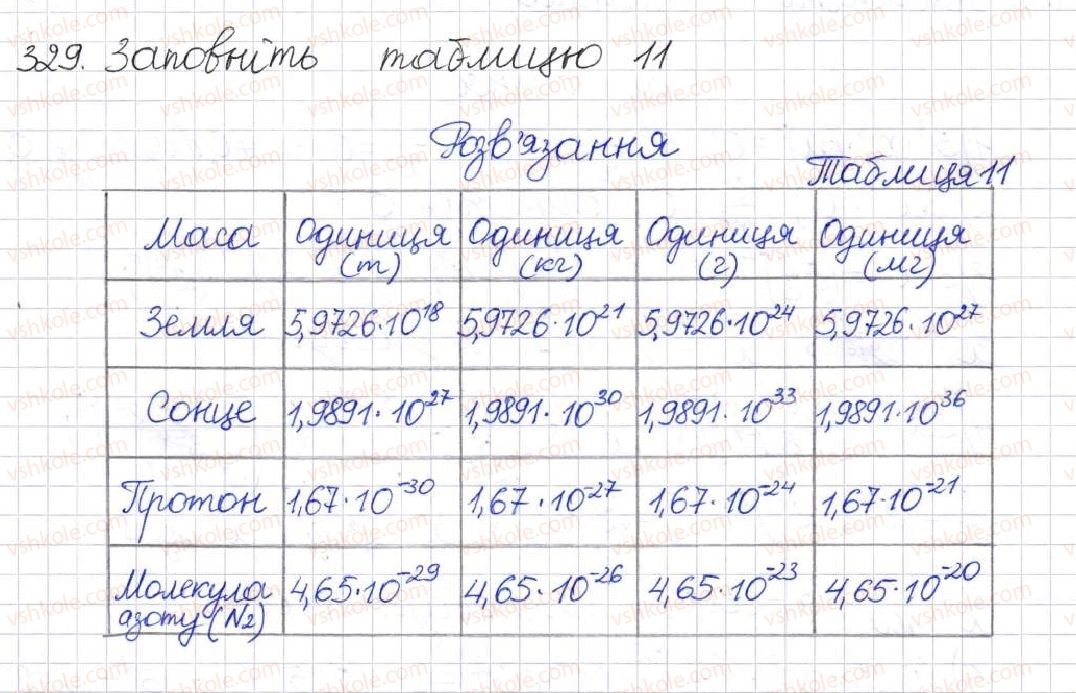 329. Заповніть таблицю 11
Розв'язання
Таблиця 11
Маса Одиниця (т) Одиниця (кг) Одиниця (г) Одиниця (мг)
Земля 5,9726·10^18 5,9726·10^21 5,9726·10^24 5,9726·10^27
Сонце 1,9891·10^27 1,9891·10^30 1,9891·10^33 1,9891·10^36
Протон 1,67·10^-30 1,67·10^-27 1,67·10^-24 1,67·10^-21
Молекула азоту (N2) 4,65·10^-29 4,65·10^-26 4,65·10^-23 4,65·10^-20
vshkole.com